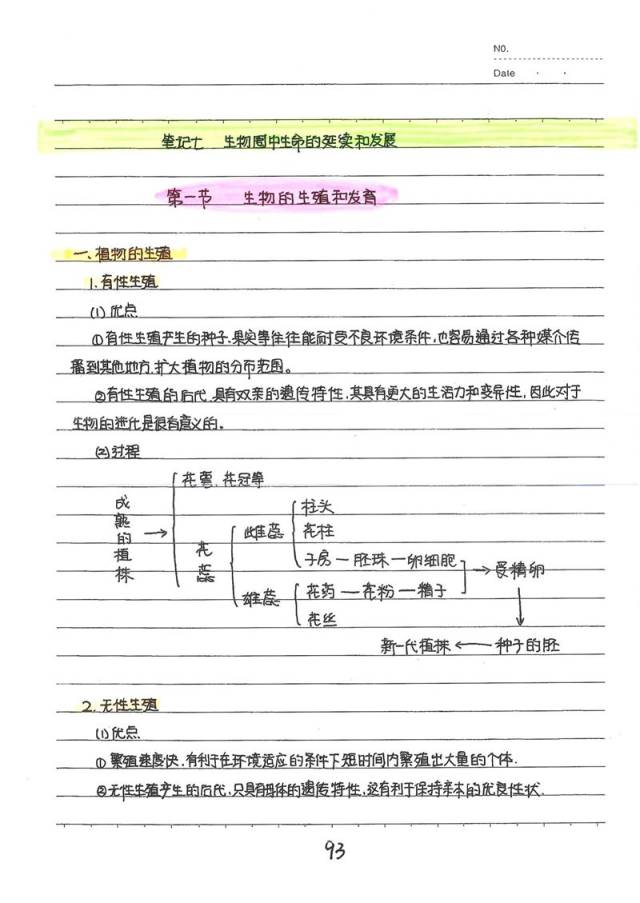 NO.
Date
笔记七 生物圈中生命的延续和发展
第一节 生物的生殖和发育
一、植物的生殖
1.有性生殖
(1)优点
①有性生殖产生的种子.果实等往往能耐受不良环境条件,也容易通过各种媒介传
播到其他地方,扩大植物的分布范围。
②有性生殖的后代,具有双亲的遗传特性,其具有更大的生活力和变异性,因此对于
生物的进化是很有意义的。
(2)过程
成熟的植株 → 花萼.花冠等
花蕊
雌蕊 柱头
花柱
子房—胚珠—卵细胞
雄蕊 花药—花粉—精子
花丝
→受精卵
新一代植株 ← 种子的胚
2.无性生殖
(1)优点
①繁殖速度快,有利于在环境适应的条件下短时间内繁殖出大量的个体.
②无性生殖产生的后代,只具有母体的遗传特性,这有利于保持亲本的优良性状.
93